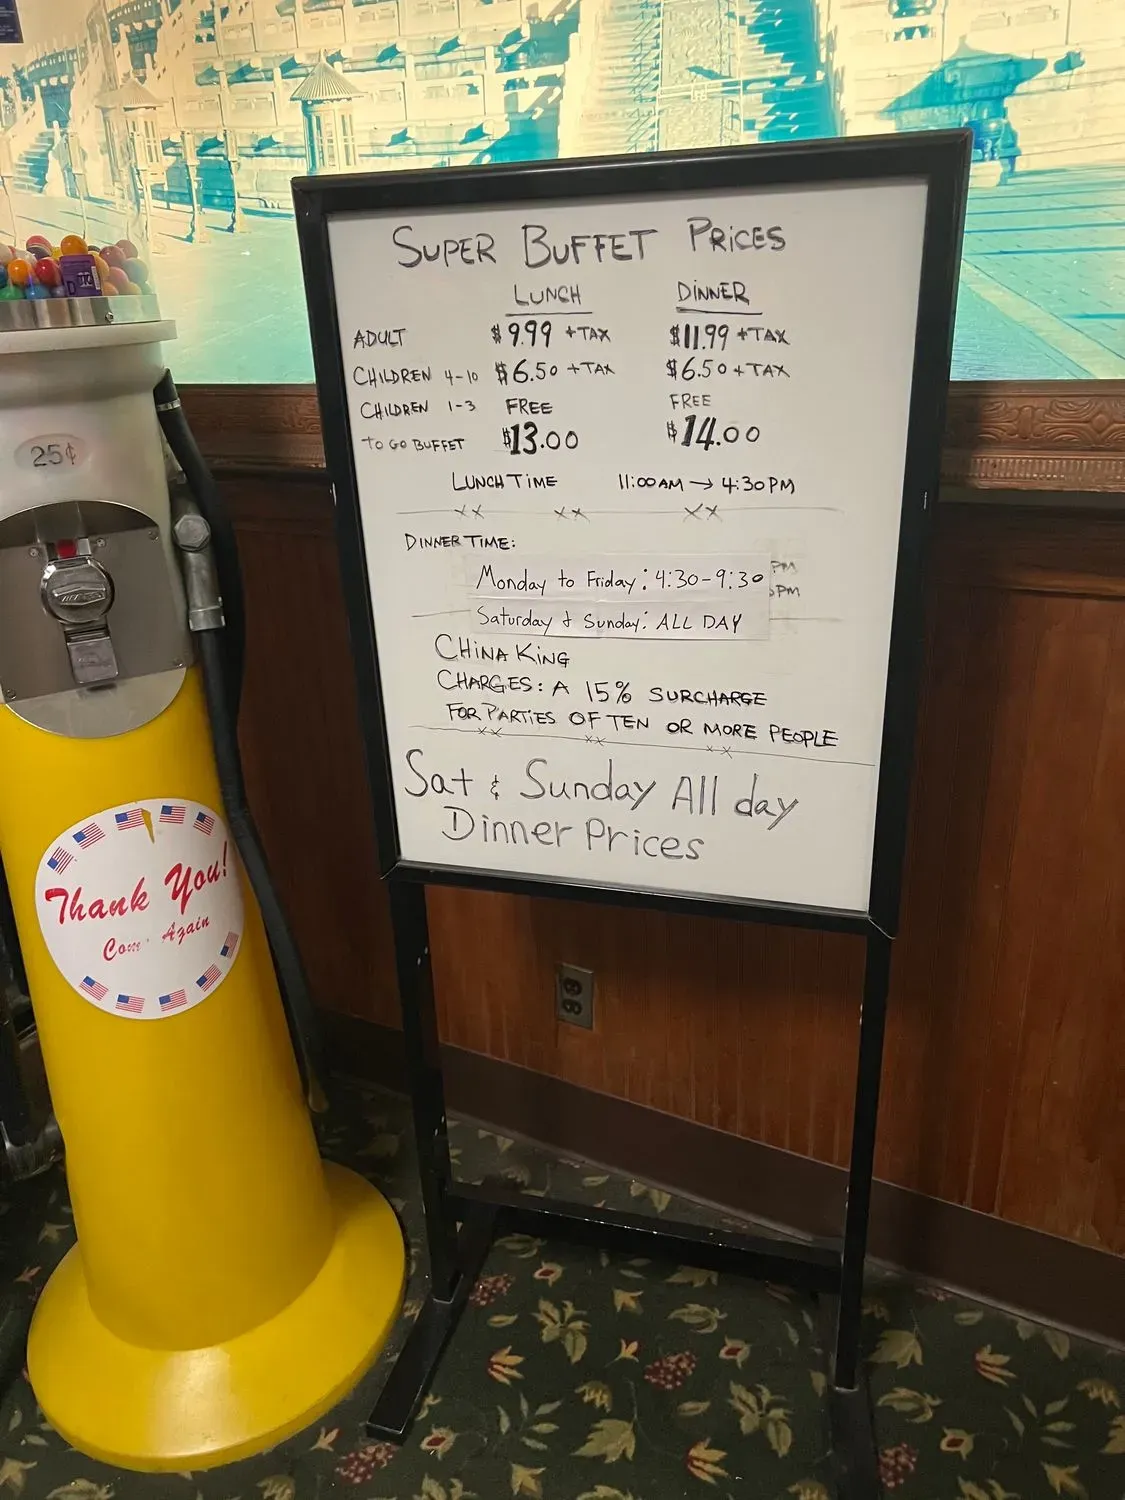 SUPER BUFFET PRICES
LUNCH DINNER
ADULT $9.99 +TAX $11.99 +TAX
CHILDREN 4-10 $6.50 +TAX $6.50 +TAX
CHILDREN 1-3 FREE FREE
TO GO BUFFET $13.00 $14.00
LUNCH TIME 11:00AM → 4:30PM
XX XX XX
DINNER TIME:
PM
Monday to Friday: 4:30-9:30
PM
Saturday & Sunday: ALL DAY
CHINA KING
CHARGES: A 15% SURCHARGE
FOR PARTIES OF TEN OR MORE PEOPLE
XX XX XX
Sat & Sunday All day
Dinner Prices
25¢
Thank You!
Again